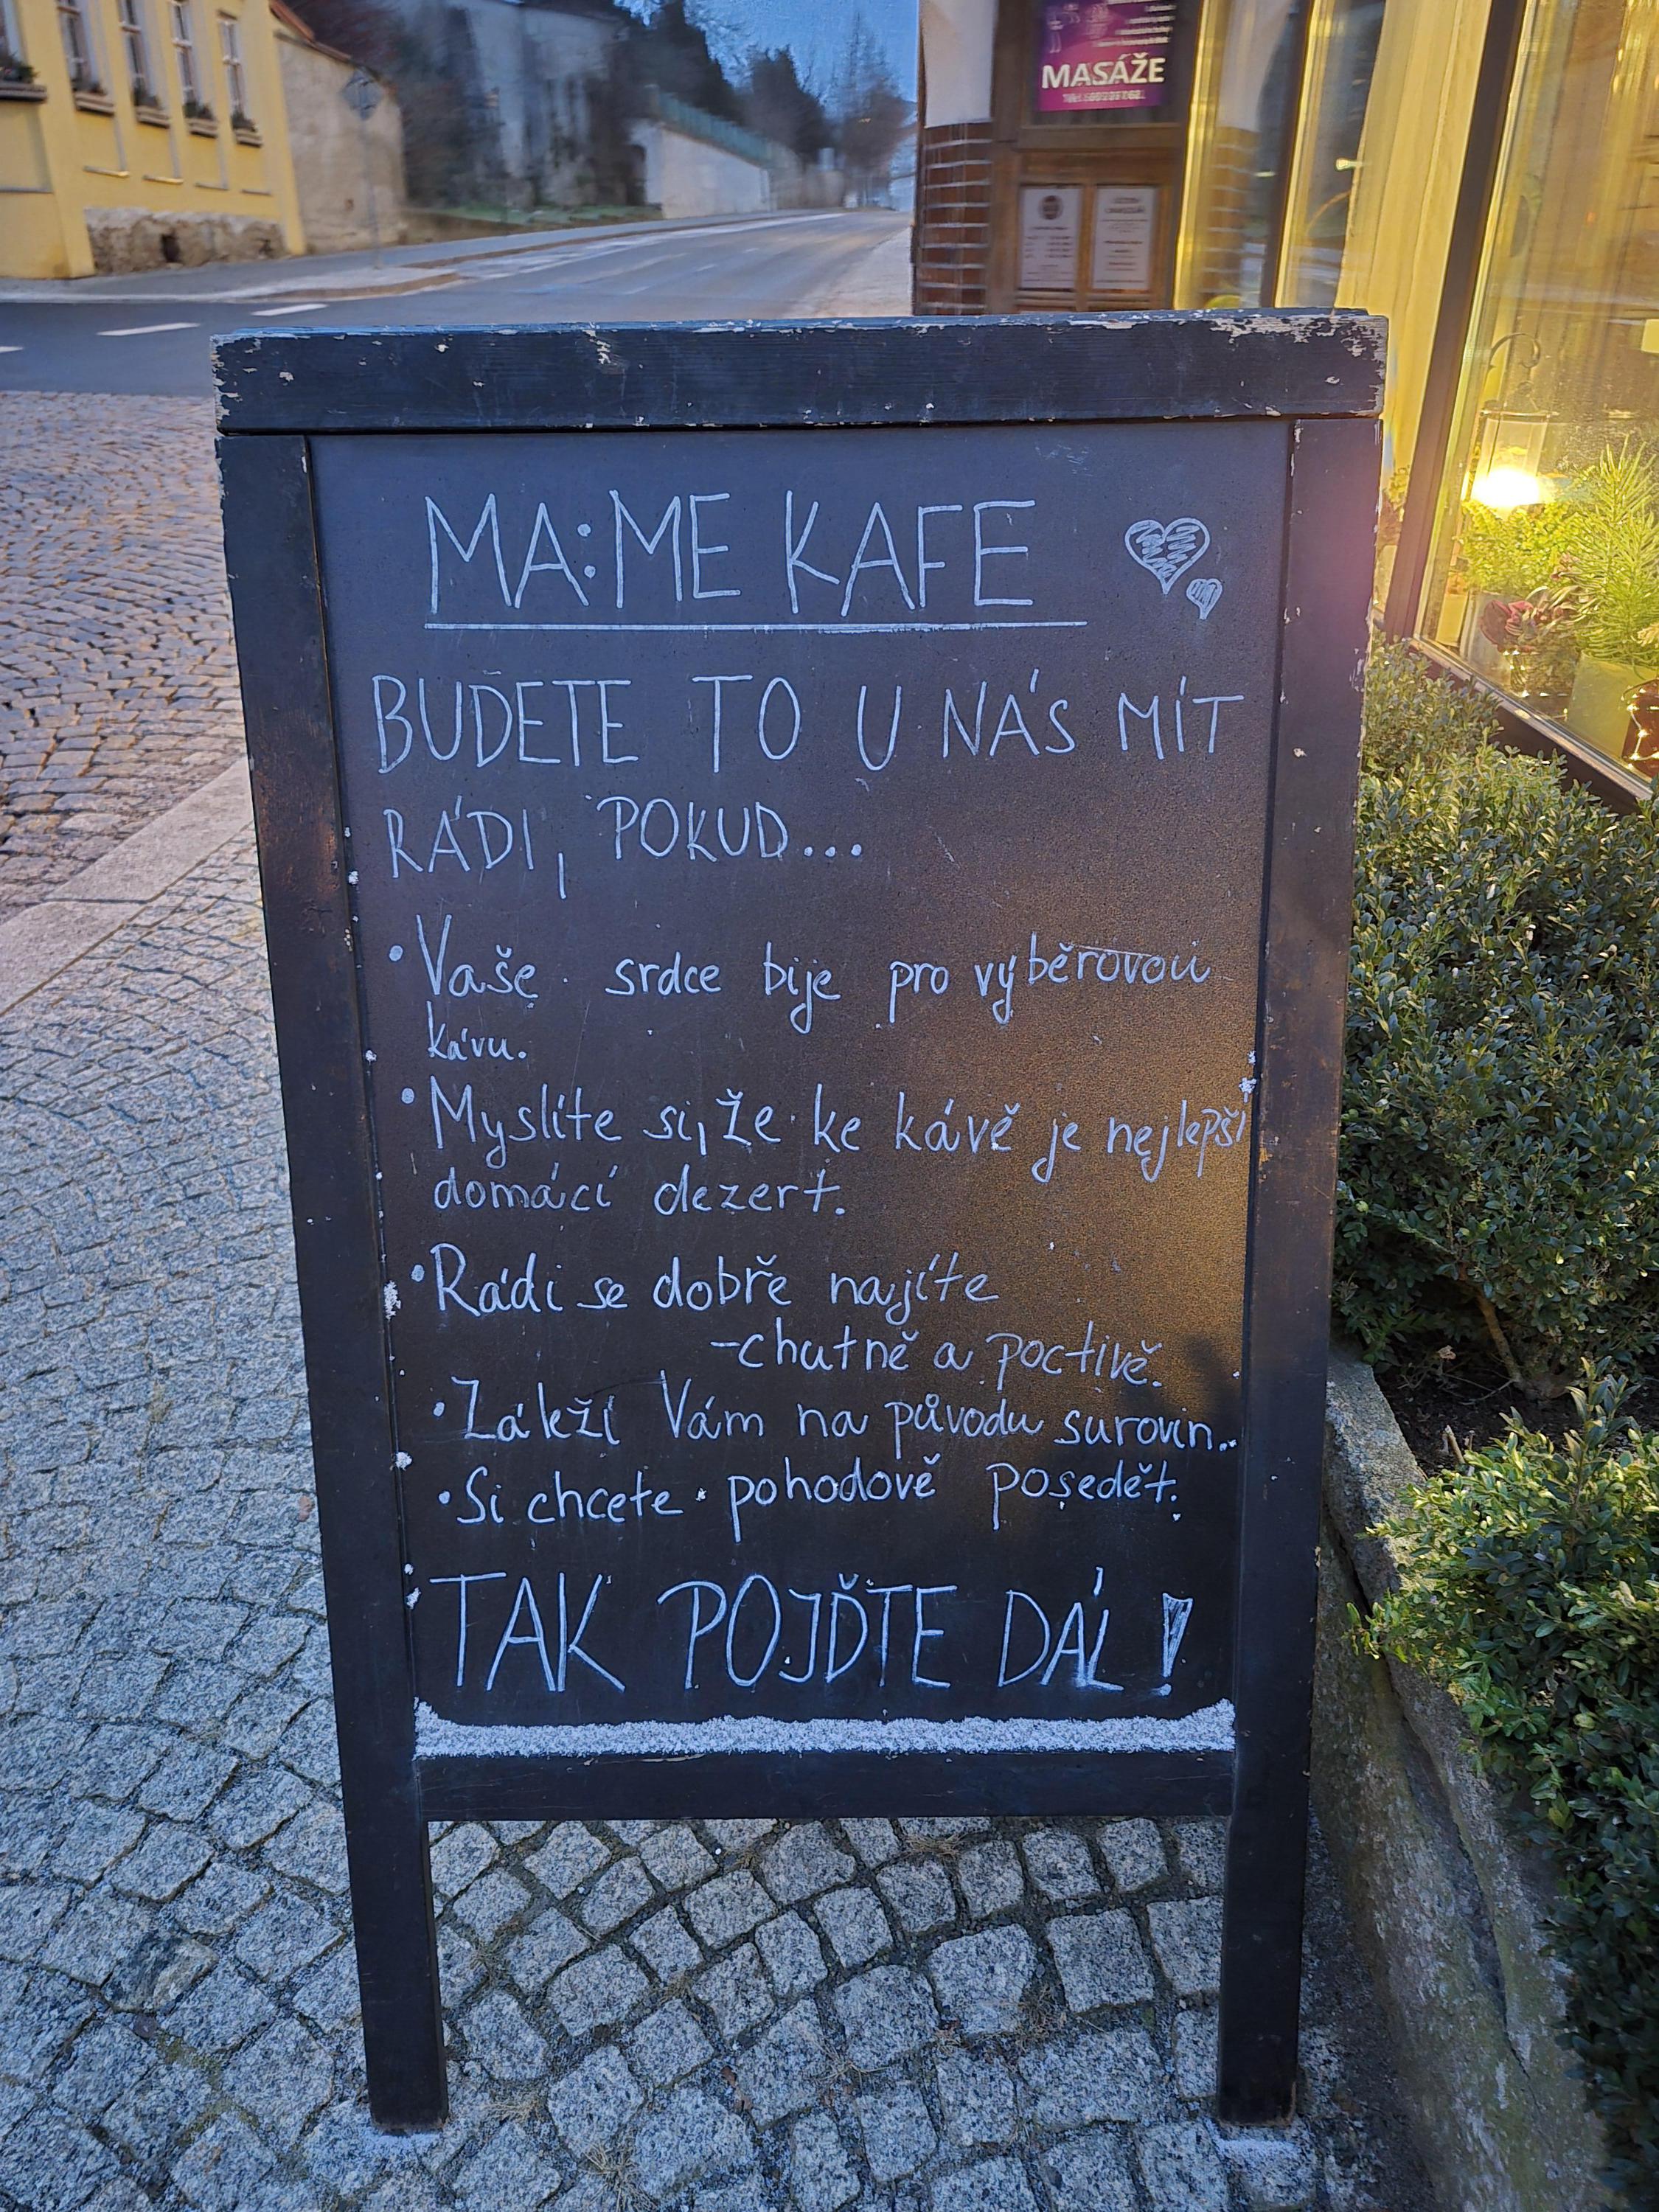 MASÁŽE
MA:ME KAFE
BUDETE TO U NÁS MÍT
RÁDI, POKUD...
• Vaše srdce bije pro výběrovou
kávu.
• Myslíte si, že ke kávě je nejlepší
domácí dezert.
• Rádi se dobře najíte
- chutně a poctivě.
• Záleží Vám na původu surovin..
• Si chcete pohodově posedět.
TAK POJĎTE DÁL!